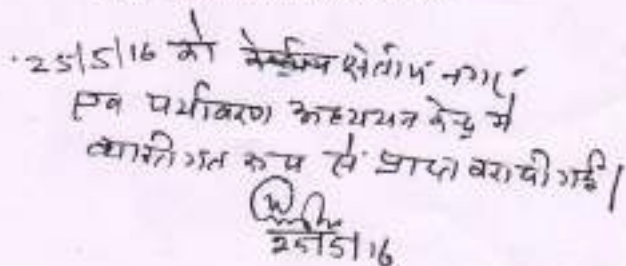 25/5/16 को क्षेत्रीय नगर
एवं पर्यावरण अध्ययन केन्द्र में
व्यक्तिगत रूप से प्राप्त करायी गई।
25/5/16